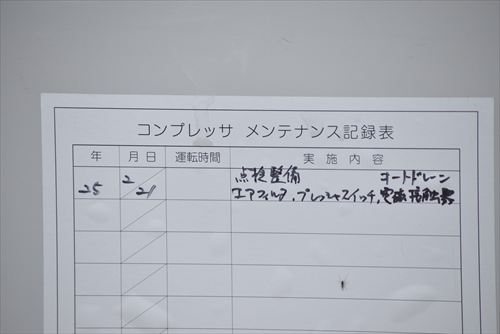 コンプレッサ メンテナンス記録表
年 月日 運転時間 実施内容
25 2/21 点検整備 オートドレーン
エアフィルタ、プレッシャスイッチ、電磁接触器